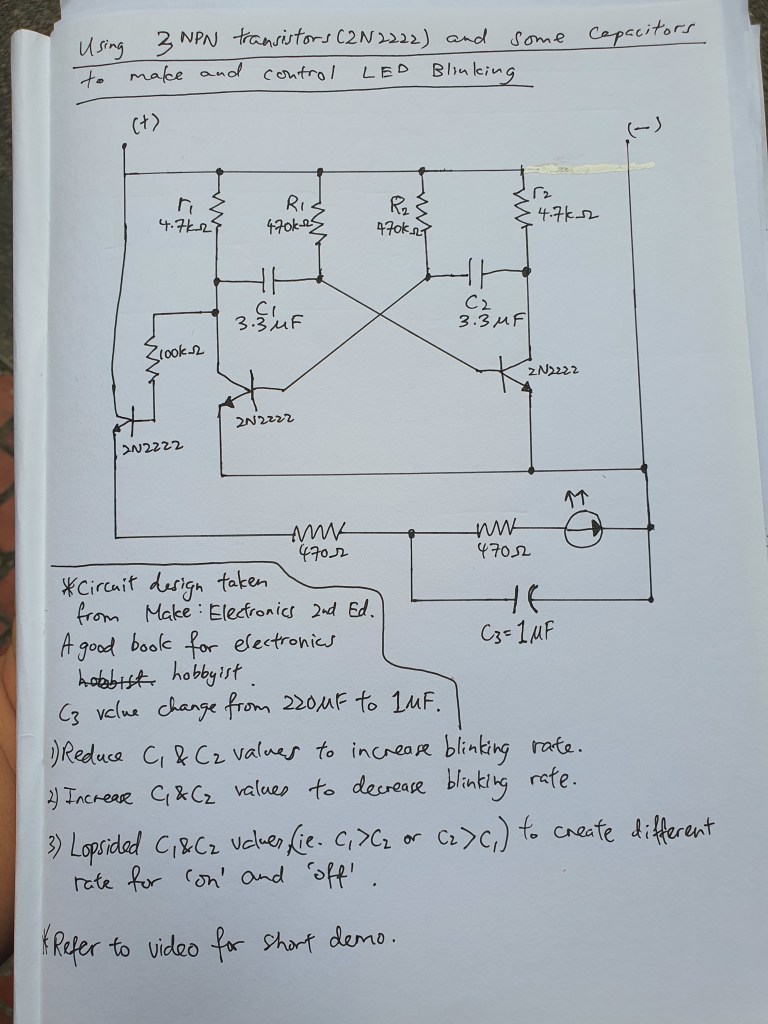 Using 3 NPN transistors (2N2222) and some capacitors
to make and control LED Blinking
(+)
(-)
r1
4.7kΩ
R1
470kΩ
R2
470kΩ
r2
4.7kΩ
C1
3.3μF
C2
3.3μF
100kΩ
2N2222
2N2222
2N2222
470Ω
470Ω
C3=1μF
*Circuit design taken
from Make: Electronics 2nd Ed.
A good book for electronics
hobbist. hobbyist.
C3 value change from 220μF to 1μF.
1) Reduce C1 & C2 values to increase blinking rate.
2) Increase C1 & C2 values to decrease blinking rate.
3) Lopsided C1 & C2 values, (ie. C1>C2 or C2>C1) to create different
rate for 'on' and 'off'.
*Refer to video for short demo.